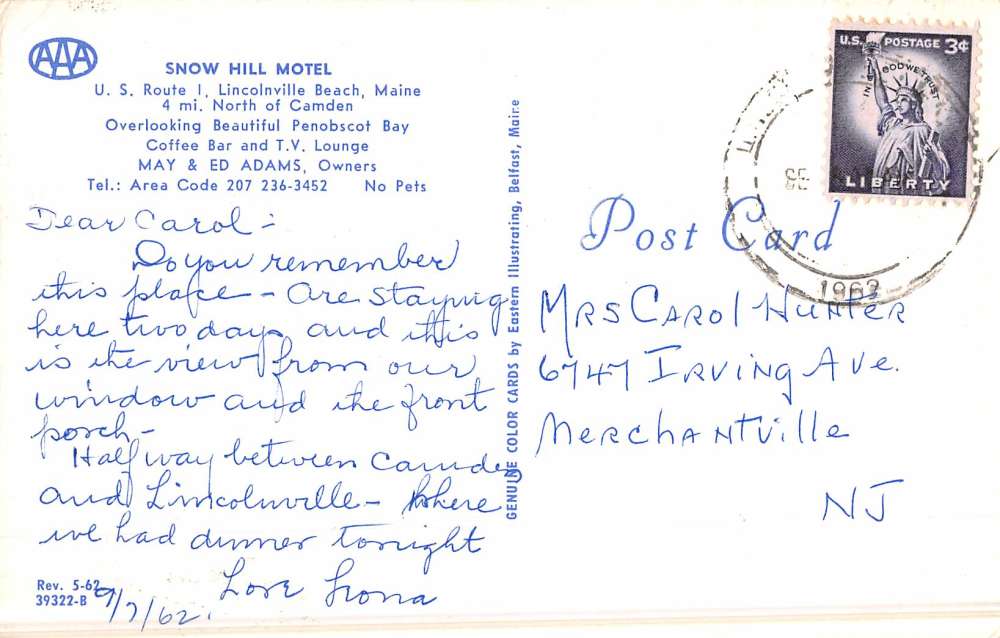 AAA
SNOW HILL MOTEL
U. S. Route 1, Lincolnville Beach, Maine
4 mi. North of Camden
Overlooking Beautiful Penobscot Bay
Coffee Bar and T.V. Lounge
MAY & ED ADAMS, Owners
Tel.: Area Code 207 236-3452 No Pets
Dear Carol:-
Do you remember
this place - Are staying
here two days and this
is the view from our
window and the front
porch -
Half way between Camden
and Lincolnville - where
we had dinner tonight
Love Leona
Rev. 5-62
39322-B
9/7/62.
GENUINE COLOR CARDS by Eastern Illustrating, Belfast, Maire
Post Card
U.S. POSTAGE 3¢
IN GOD WE TRUST
LIBERTY
SE
196
Mrs Carol Hunter
6747 Irving Ave.
Merchantville
NJ